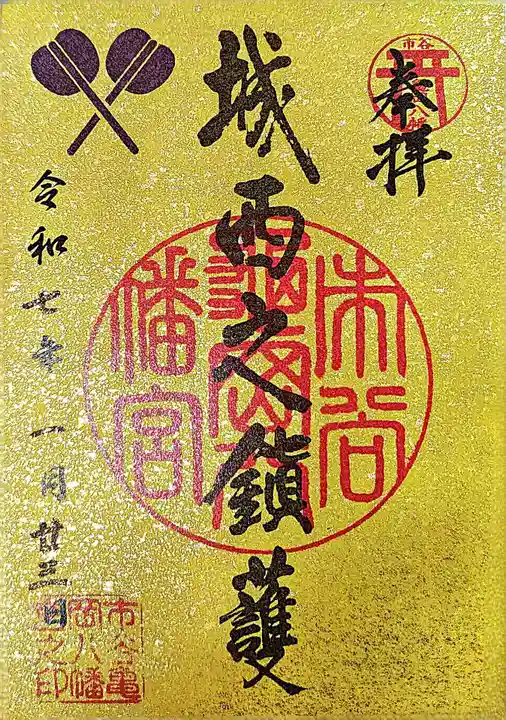 奉拝
市谷
城西之鎮護
市谷亀岡八幡宮
令和七年一月廿三日
市谷亀岡八幡宮之印